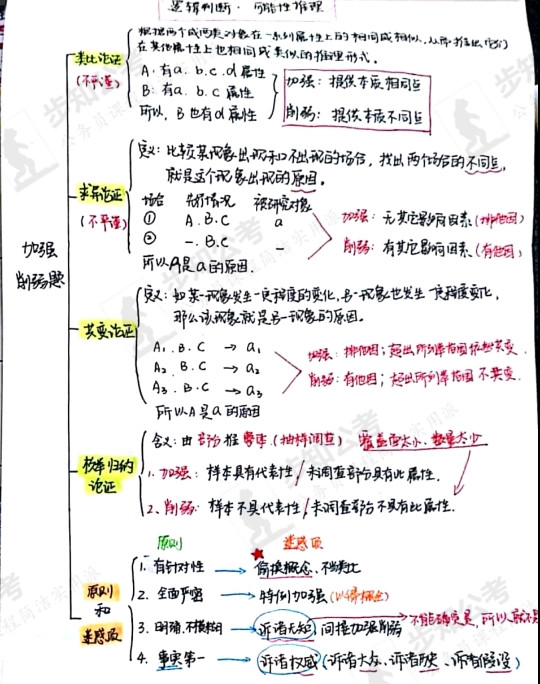 逻辑判断·可能性推理
加强
削弱题
类比论证
(不严谨)
根据两个或两类对象在一系列属性上的相同或相似,从而推出它们
在其他属性上也相同或类似的推理形式。
A:有a.b.c.d属性
B:有a.b.c属性
所以,B也有d属性
加强:提供本质相同点
削弱:提供本质不同点
求异论证
(不严谨)
定义:比较某现象出现和不出现的场合,找出两个场合的不同点,
就是这个现象出现的原因。
场合 先行情况 被研究对象
① A.B.C a
② —.B.C —
所以A是a的原因.
加强:无其它影响因素(排他因)
削弱:有其它影响因素(有他因)
共变论证
定义:如某一现象发生一定程度的变化,另一现象也发生一定程度变化,
那么该现象就是另一现象的原因。
A₁.B.C → a₁
A₂.B.C → a₂
A₃.B.C → a₃
所以A是a的原因
加强:排他因;超出所列举范围依然共变.
削弱:有他因;超出所列举范围不共变.
枚举归纳
论证
含义:由部分推整体(抽样调查) 覆盖面大小、数量大小
1.加强:样本具有代表性/未调查部分具有此属性.
2、削弱:样本不具代表性/未调查部分不具有此属性.
原则
和
迷惑项
原则 迷惑项
1.有针对性 → 偷换概念、不当类比
2.全面严密 → 特例加强(以偏概全)
3.明确,不模糊 → 诉诸无知,间接加强削弱 → 不能确定是,所以就不是
4.事实第一 → 诉诸权威(诉诸大众、诉诸历史、诉诸假设)
步知公考
公务员课